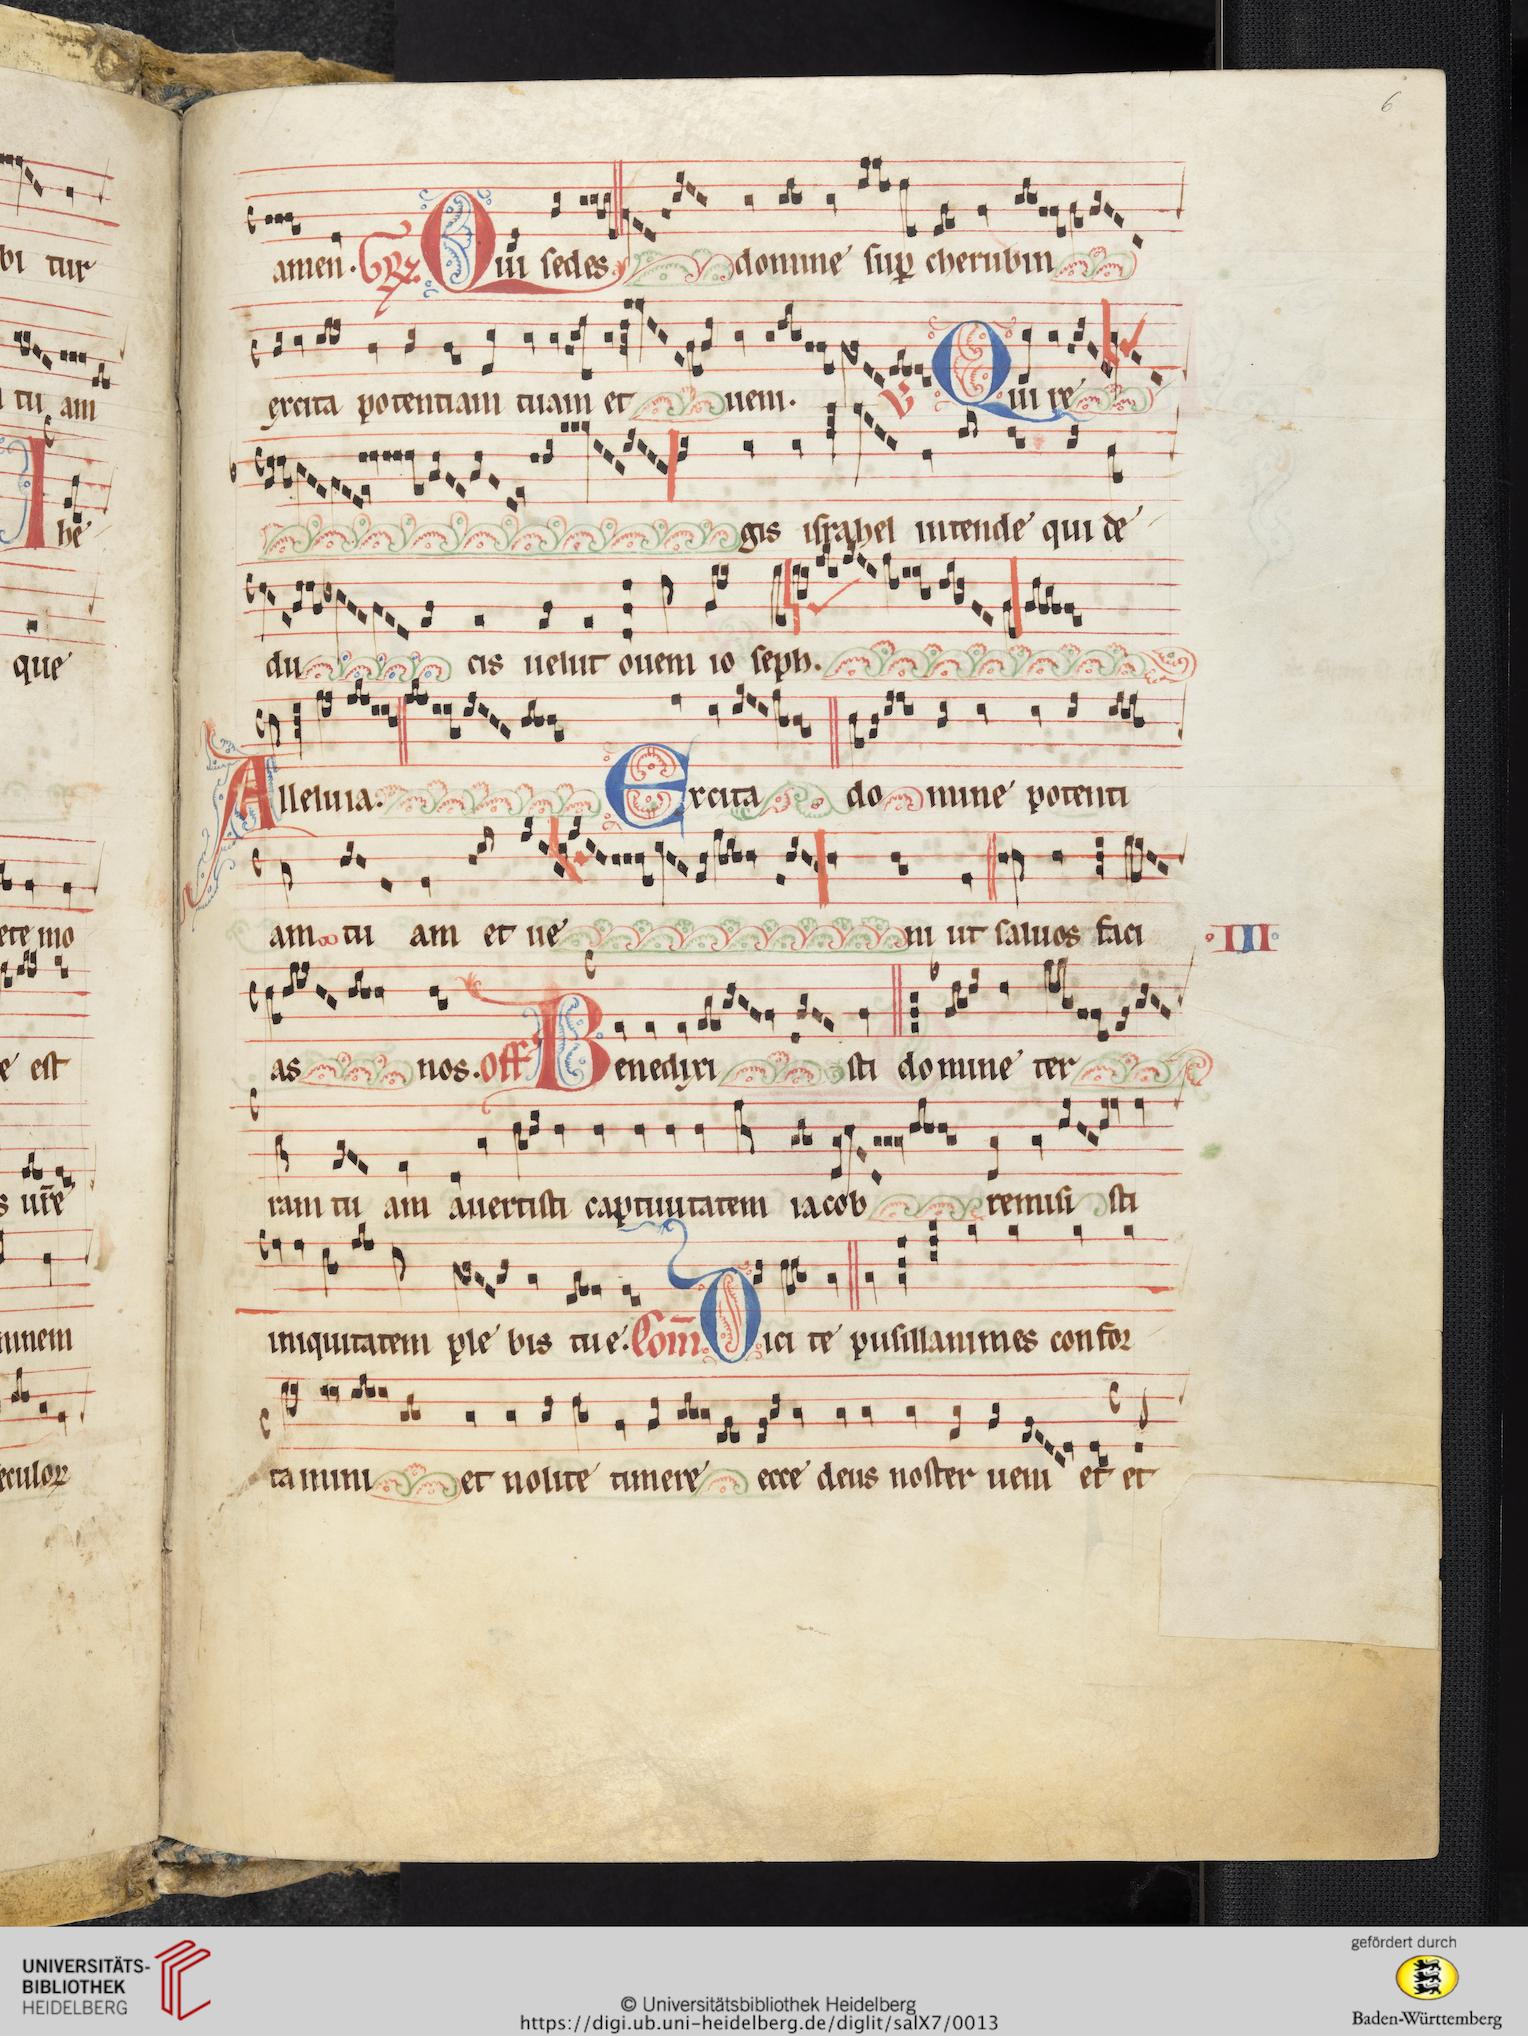 6
amen. Grꝝ. Qui sedes domine suꝑ cherubin
excita potentiam tuam et ueni. V Qui re
gis israhel intende qui de
du cis uelut ouem io seph.
Alleluia. Excita domine potenti
am tu am et ue ni ut saluos faci
III
as nos. Off Benedixi sti domine ter
ram tu am auertisti captiuitatem iacob remisi sti
iniquitatem ple bis tue. Com̄ Dici te pusillanimes confor
tamini et nolite timere ecce deus noster ueni et et
bi tur
tu am
he
que
ete mo
e est
s ur̄e
minem
eculoꝝ
UNIVERSITÄTS-
BIBLIOTHEK
HEIDELBERG
© Universitätsbibliothek Heidelberg
https://digi.ub.uni-heidelberg.de/diglit/salX7/0013
gefördert durch
Baden-Württemberg